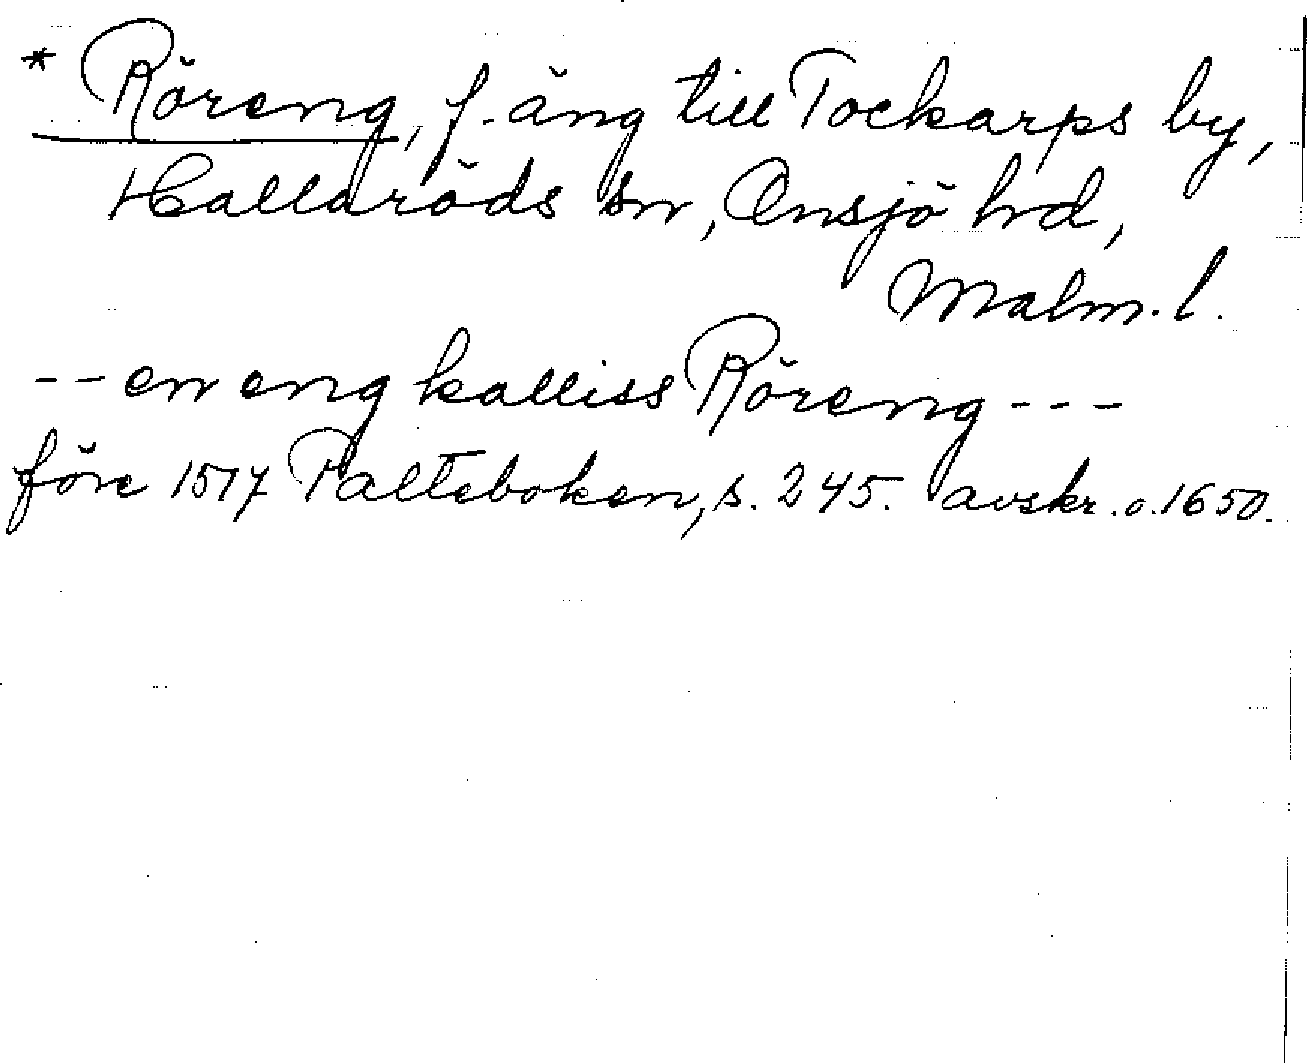 * Röreng, f. äng till Tockarps by,
Hallaröds sn, Onsjö hd,
Malm. l.
-- en eng kalliss Röreng ---
före 1517 Palteboken, s. 245. avskr. o. 1650.